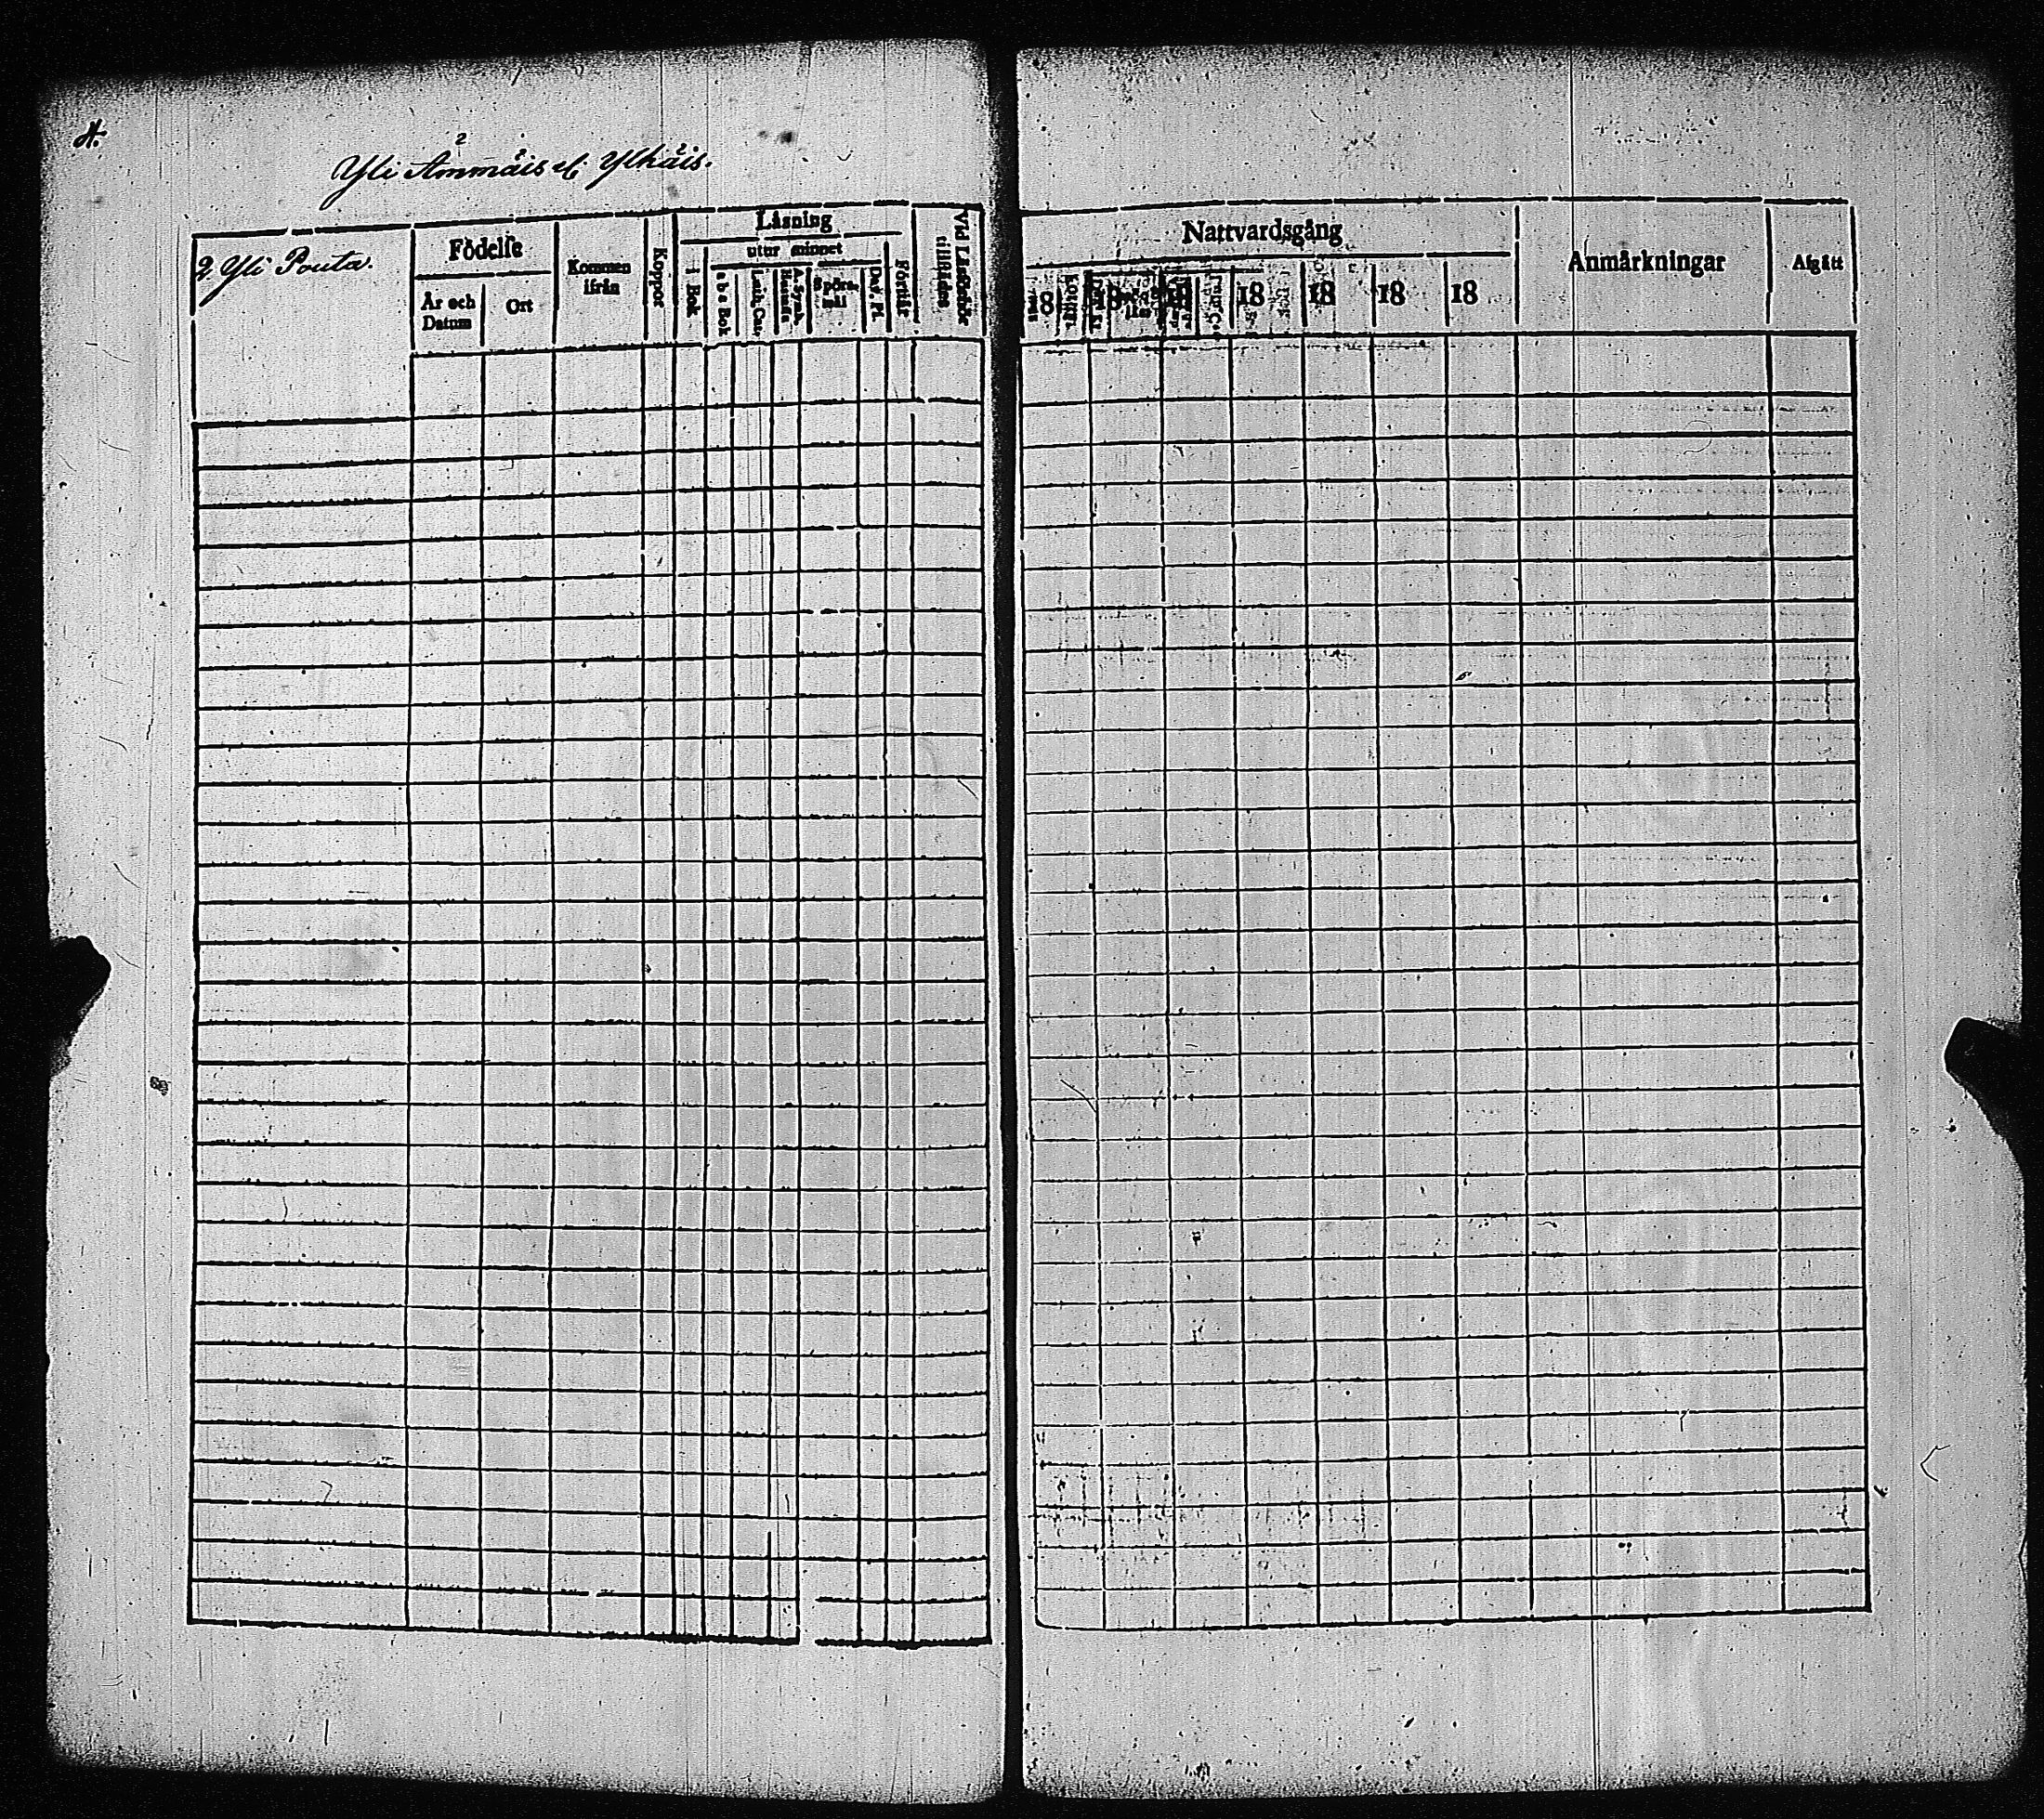 A.
Yli Ämmäis el. Ylhäis.
9. Yli Pouta.
Födelse
År och Datum
Ort
Kommen ifrån
Koppor
Läsning
i Bok
utur minnet
a b c Bok
Luth. Cat.
A. Symb. Hustafla
Spörsmål
Dav. Ps.
Förstår
Vid Läsförhör tillstädes
Nattvardsgång
18
18
18
18
18
18
18
Anmärkningar
Afgått